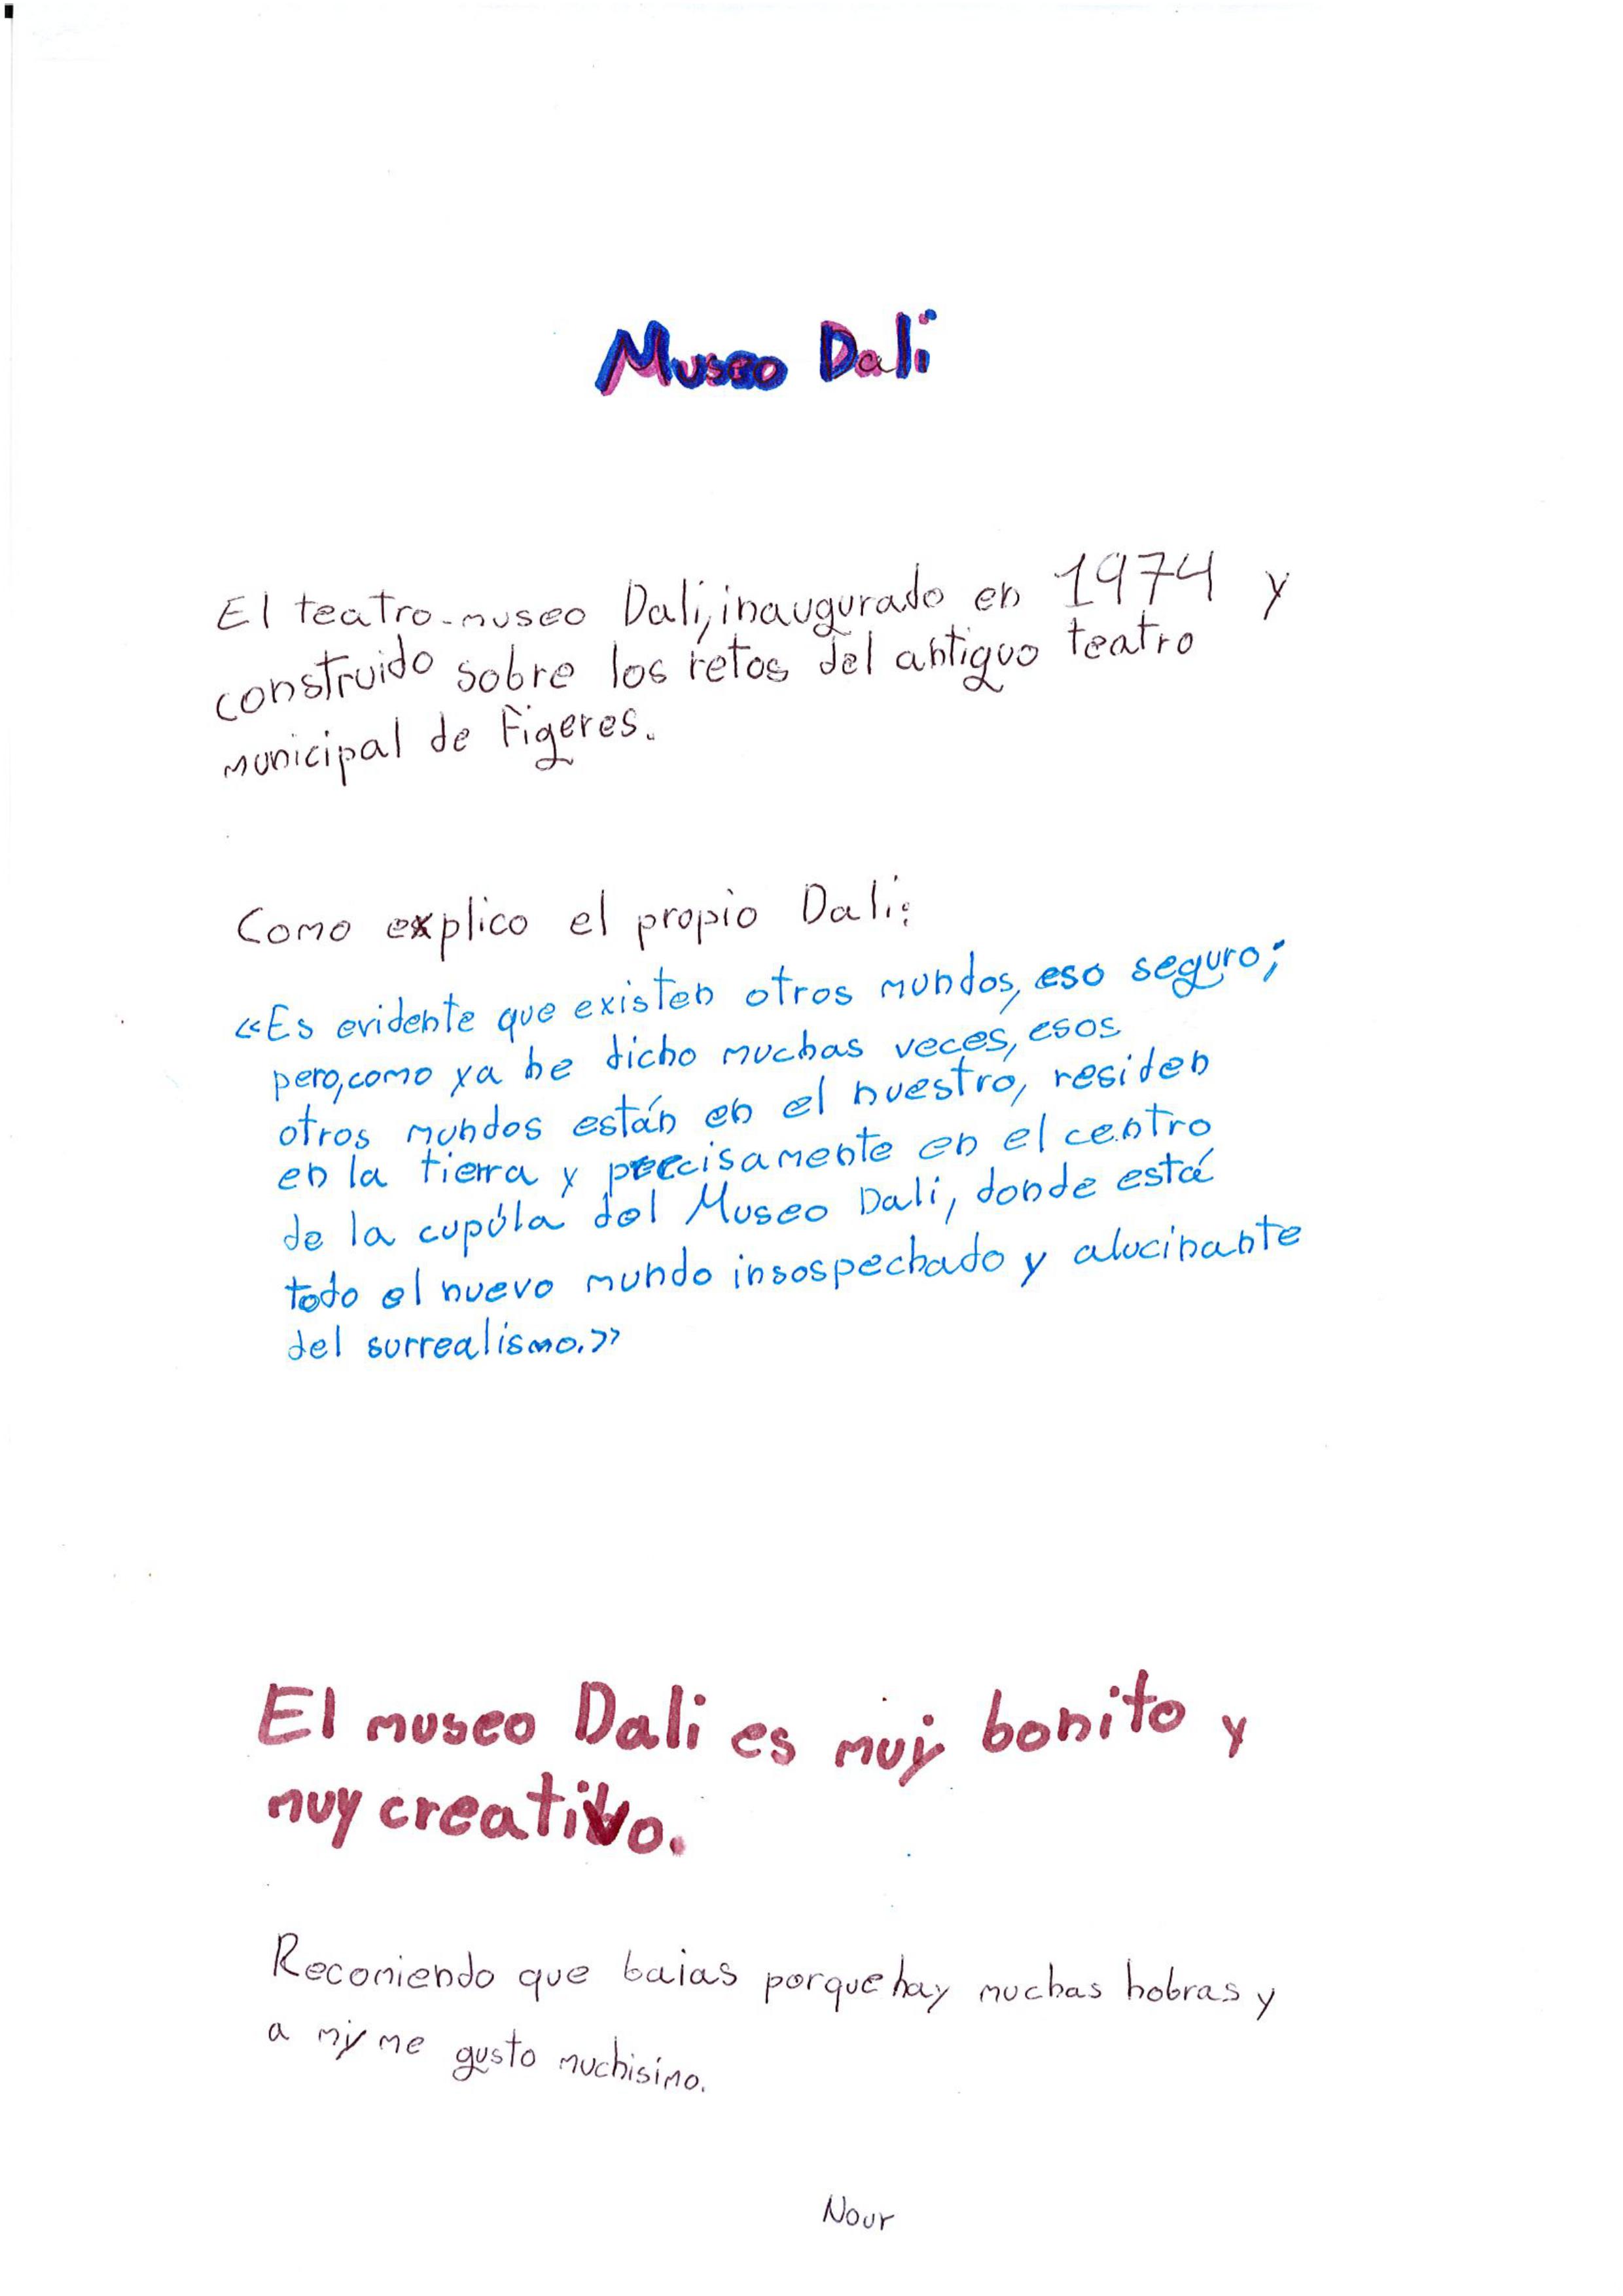 Museo Dali
El teatro-museo Dali, inaugurado en 1974 y
construido sobre los retos del antiguo teatro
municipal de Figeres.
Como explico el propio Dali:
«Es evidente que existen otros mundos, eso seguro;
pero, como ya he dicho muchas veces, esos
otros mundos están en el nuestro, residen
en la tierra y precisamente en el centro
de la cupúla del Museo Dali, donde está
todo el nuevo mundo insospechado y alucinante
del surrealismo.»
El museo Dali es muy bonito y
muy creativo.
Recomiendo que baias porque hay muchas hobras y
a my me gusto muchisimo.
Nour